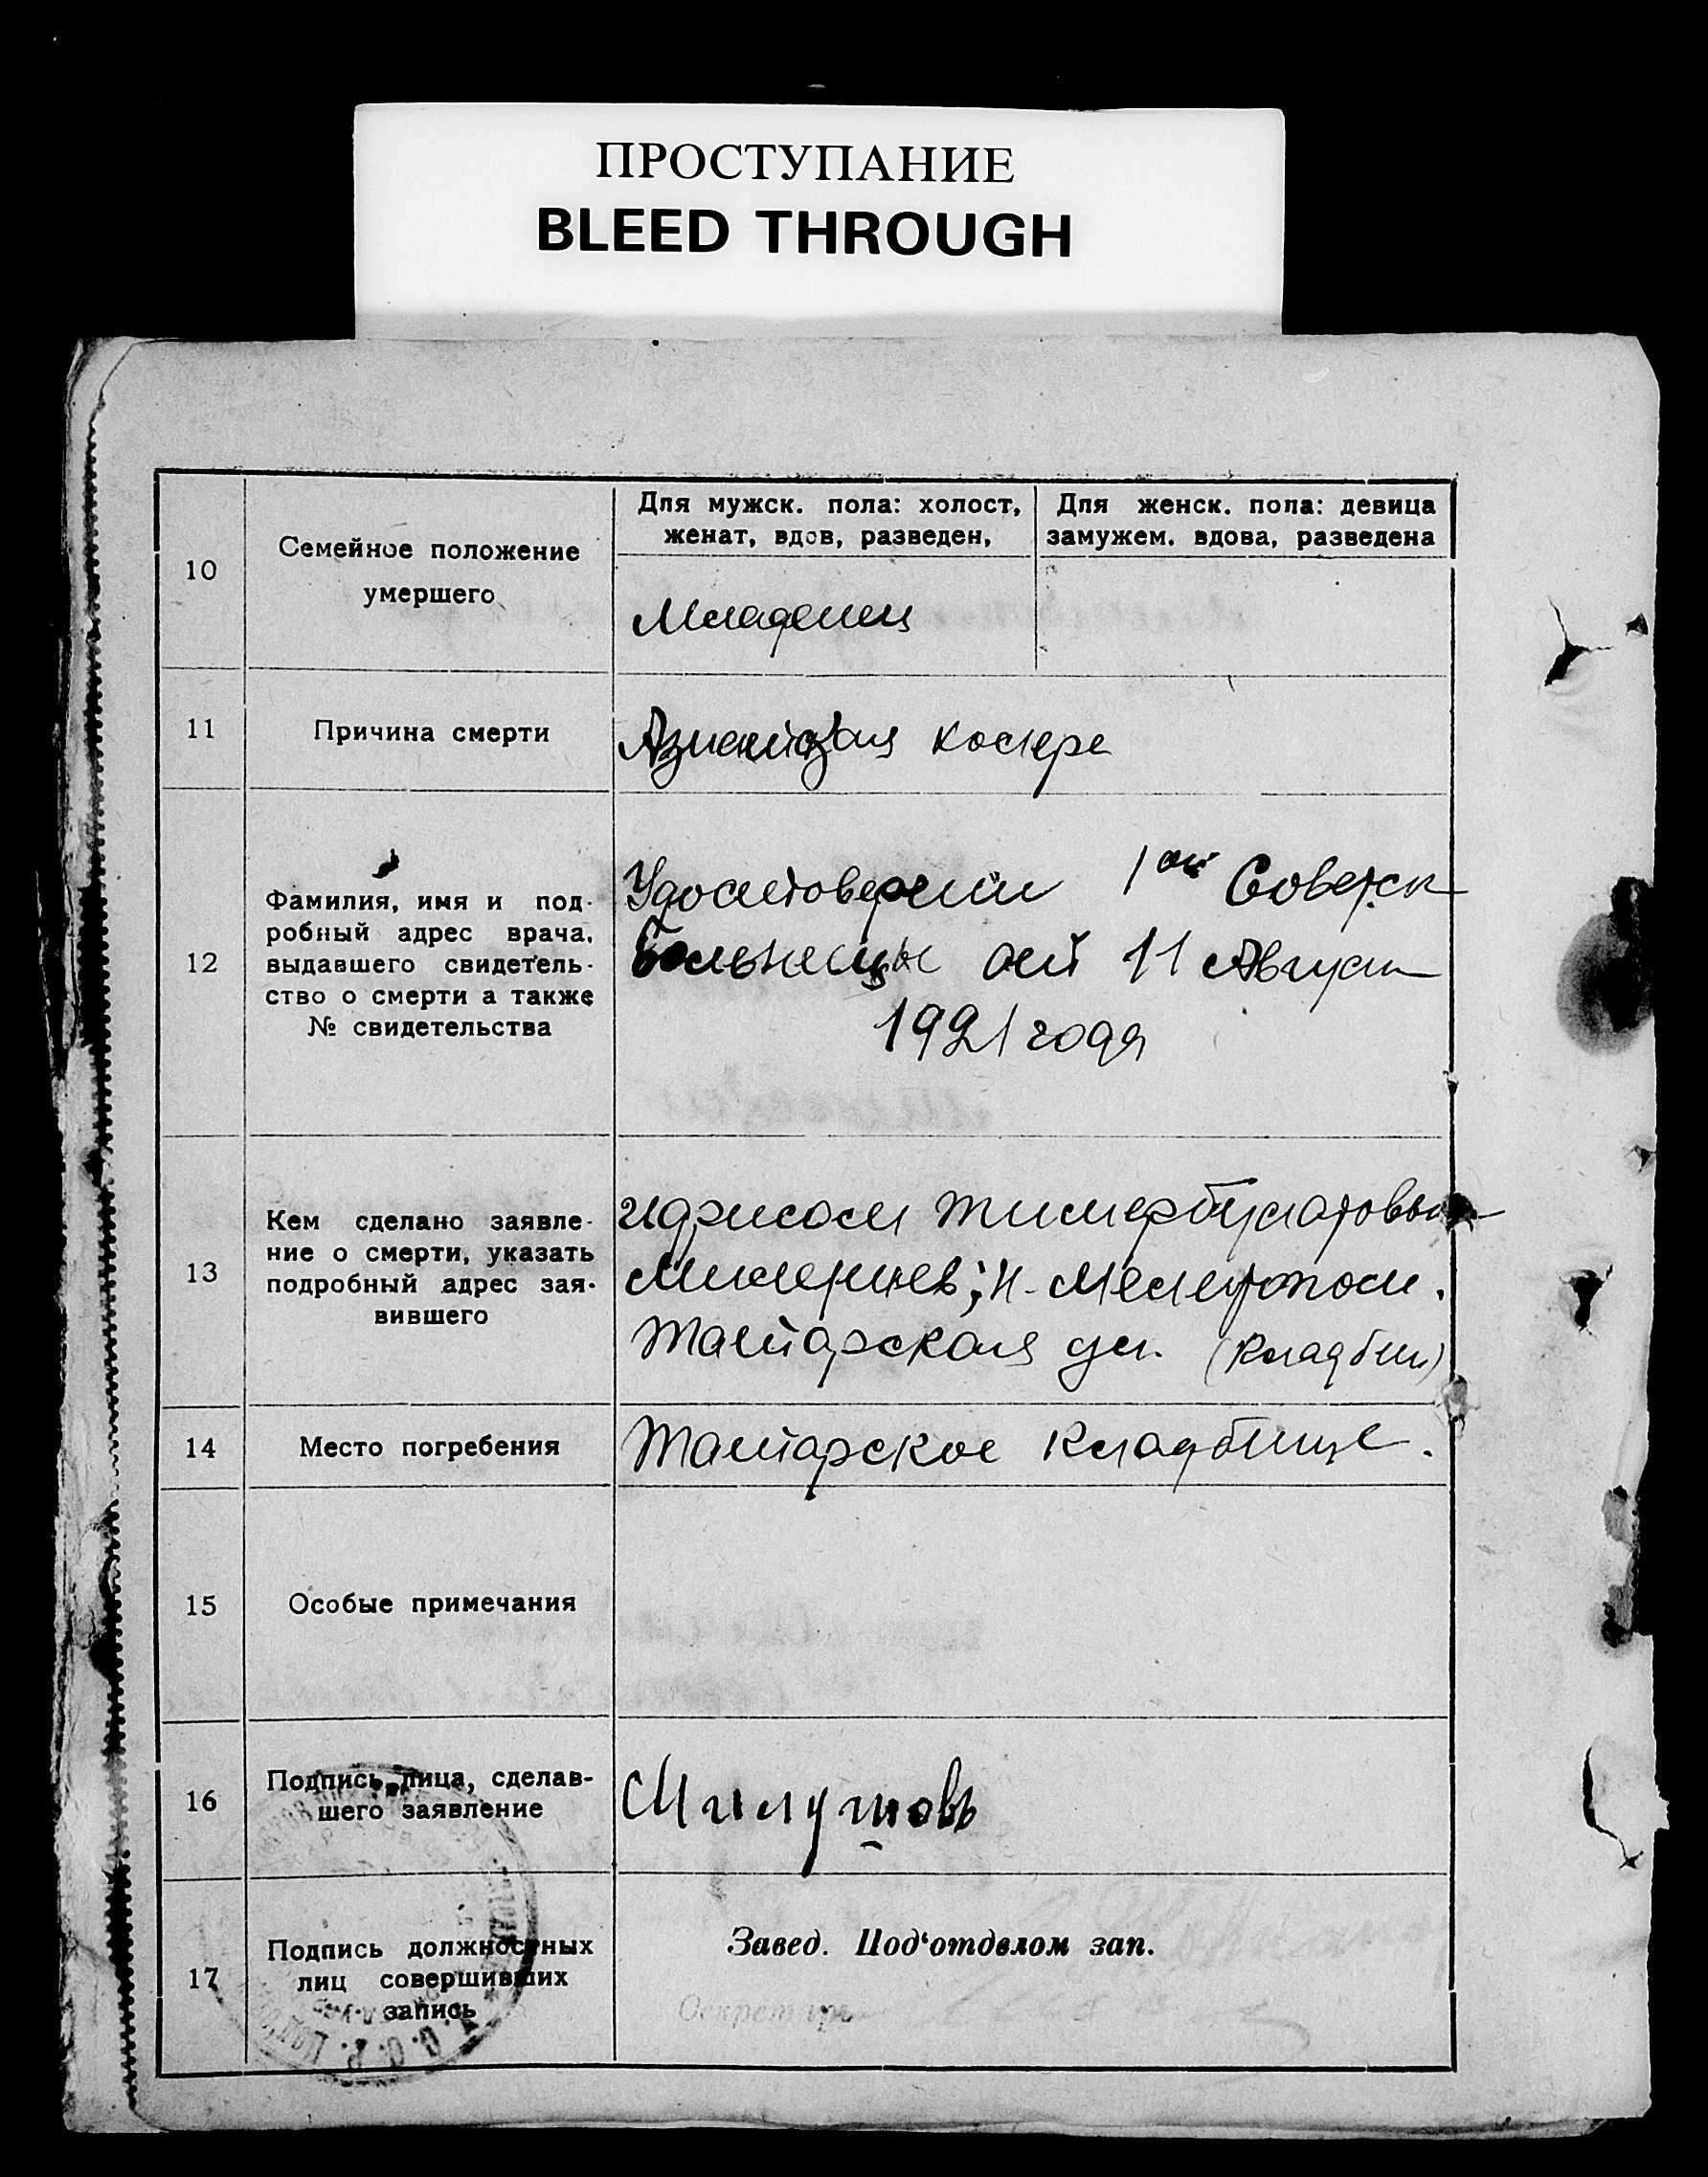 ПРОСТУПАНИЕ
BLEED THROUGH
10
Семейное положение
умершего
Для мужск. пола: холост,
женат, вдов, разведен,
Для женск. пола: девица
замужем. вдова, разведена
Младенец
11
Причина смерти
Азиатская холера
12
Фамилия, имя и под-
робный адрес врача,
выдавшего свидетель-
ство о смерти а также
№ свидетельства
Удостоверении 1ой Советск
больницы от 11 Август
1921 года
13
Кем сделано заявле-
ние о смерти, указать
подробный адрес зая-
вившего
Идрисом Тимербулатовы
Н.
Татарская ул. (Кладбищ)
14
Место погребения
Татарское Кладбище.
15
Особые примечания
16
Подпись лица, сделав-
шего заявление
17
Подпись должностных
лиц совершивших
запись
Завед. Под‘отделом зап.
Секретарь